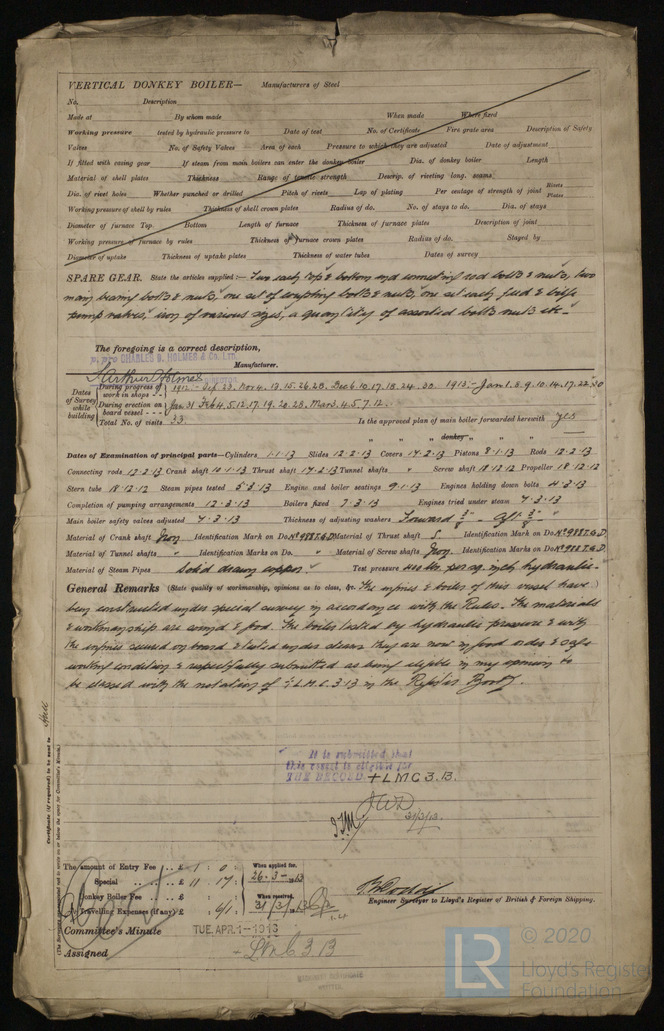 VERTICAL DONKEY BOILER— Manufacturers of Steel
No. Description
Made at By whom made When made Where fixed
Working pressure tested by hydraulic pressure to Date of test No. of Certificate Fire grate area Description of Safety
Valves No. of Safety Valves Area of each Pressure to which they are adjusted Date of adjustment
If fitted with casing gear If steam from main boilers can enter the donkey boiler Dia. of donkey boiler Length
Material of shell plates Thickness Range of tensile strength Descrip. of riveting long. seams
Dia. of rivet holes Whether punched or drilled Pitch of rivets Lap of plating Per centage of strength of joint Rivets Plates
Working pressure of shell by rules Thickness of shell crown plates Radius of do. No. of stays to do. Dia. of stays
Diameter of furnace Top Bottom Length of furnace Thickness of furnace plates Description of joint
Working pressure of furnace by rules Thickness of furnace crown plates Radius of do. Stayed by
Diameter of uptake Thickness of uptake plates Thickness of water tubes Dates of survey
SPARE GEAR. State the articles supplied:— Two each top & bottom end connecting rod bolts & nuts, two
main bearing bolts & nuts, one set of coupling bolts & nuts, one set each feed & bilge
pump valves, iron of various sizes, a quantity of assorted bolts nuts etc—
The foregoing is a correct description,
CHARLES D. HOLMES & Co. LTD.
Arthur Holmes DIRECTOR Manufacturer.
Dates of Survey while building
During progress of work in shops - - 1912:- Sep 23. Nov 4. 13. 15. 26. 28. Dec 6. 10. 17. 18. 24. 30. 1913:- Jan 1. 8. 9. 10. 14. 17. 22. 30
During erection on board vessel - - - Jan 31 Feb 4. 5. 12. 17. 19. 20. 28. Mar 3. 4. 5. 7. 12.
Total No. of visits 33 Is the approved plan of main boiler forwarded herewith Yes
" " " donkey " " "
Dates of Examination of principal parts—Cylinders 1.1.13 Slides 12.2.13 Covers 17.2.13 Pistons 8.1.13 Rods 12.2.13
Connecting rods 12.2.13 Crank shaft 10.1.13 Thrust shaft 17.2.13 Tunnel shafts " Screw shaft 18.12.12 Propeller 18.12.12
Stern tube 18.12.12 Steam pipes tested 5.3.13 Engine and boiler seatings 9.1.13 Engines holding down bolts 4.3.13
Completion of pumping arrangements 12.3.13 Boilers fixed 7.3.13 Engines tried under steam 7.3.13
Main boiler safety valves adjusted 7.3.13 Thickness of adjusting washers Forward 3/8" - Aft 3/8"
Material of Crank shaft Iron Identification Mark on Do. No 988 T.G.D. Material of Thrust shaft S Identification Mark on Do. No 988 T.G.D.
Material of Tunnel shafts " Identification Marks on Do. " Material of Screw shafts Iron Identification Marks on Do. No 988 T.G.D.
Material of Steam Pipes Solid drawn copper Test pressure 400 lbs. per sq. inch hydraulic—
General Remarks (State quality of workmanship, opinions as to class, &c. The engines & boilers of this vessel have
been constructed under special survey in accordance with the Rules. The materials
& workmanship are sound & good. The boiler tested by hydraulic pressure & with
the engines secured on board & tested under steam they are now in good order & safe
working condition & respectfully submitted as being eligible in my opinion to
be classed with the notation of + L.M.C. 3.13 in the Register Book.
Certificate (if required) to be sent to Hull
It is submitted that
this vessel is eligible for
THE RECORD + LMC 3.13.
JWD
31/3/13.
The amount of Entry Fee .. £ 1 : 0 : When applied for,
Special .. .. £ 11 : 17 : 26.3.1913
Donkey Boiler Fee .. £ : : When received,
Travelling Expenses (if any) £ : 4/1 : 31/3/1913
Engineer Surveyor to Lloyd's Register of British & Foreign Shipping.
Committee's Minute TUE. APR. 1—1913
Assigned + LMC 3.13
LR © 2020
Lloyd's Register
Foundation